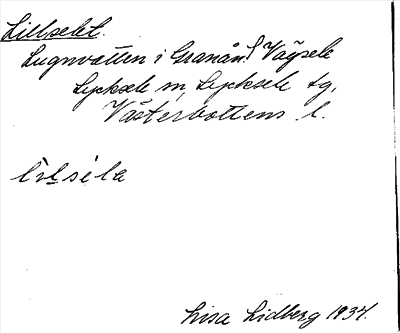 Lillselet.
Lugnvatten i Granån, Vägsele
Lycksele sn, Lycksele tg,
Västerbottens l.
lìlséla
Lisa Lidberg 1934.